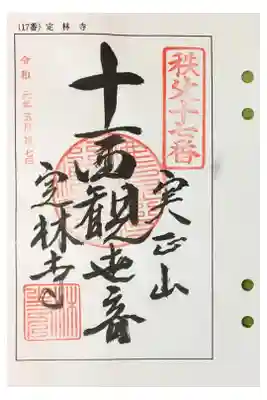 (17番) 定林寺
秩父十七番
実正山
十一面観世音
定林寺
令和元年五月